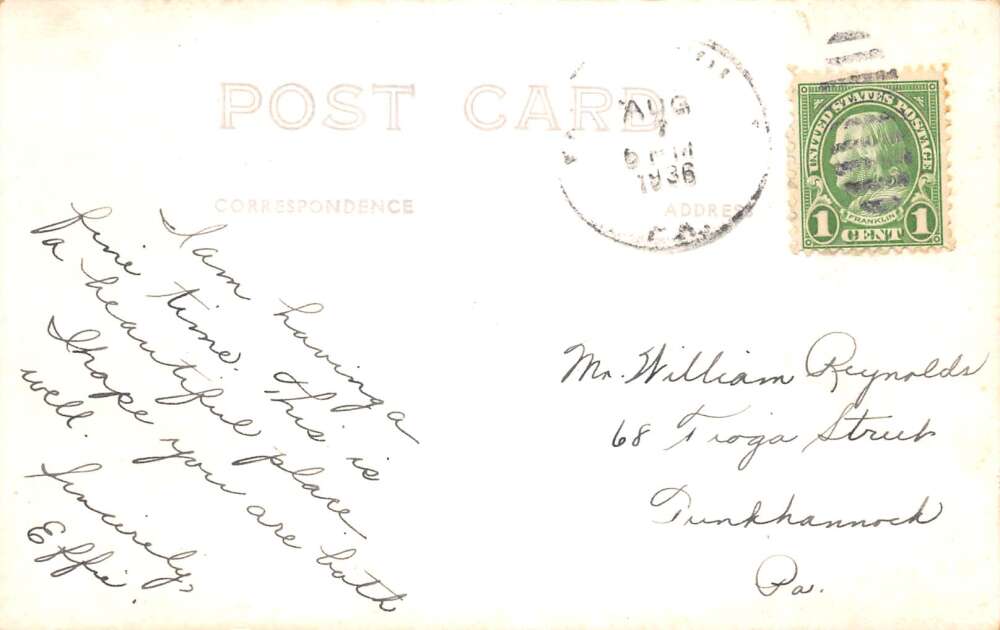 POST CARD
CORRESPONDENCE
ADDRESS
AUG
7
6 PM
1936
PA.
UNITED STATES POSTAGE
FRANKLIN
1 CENT 1
I am having a
fine time. This is
a beautiful place
I hope you are both
well.
Sincerely,
Effie.
Mr. William Reynolds
68 Tioga Street
Tunkhannock
Pa.